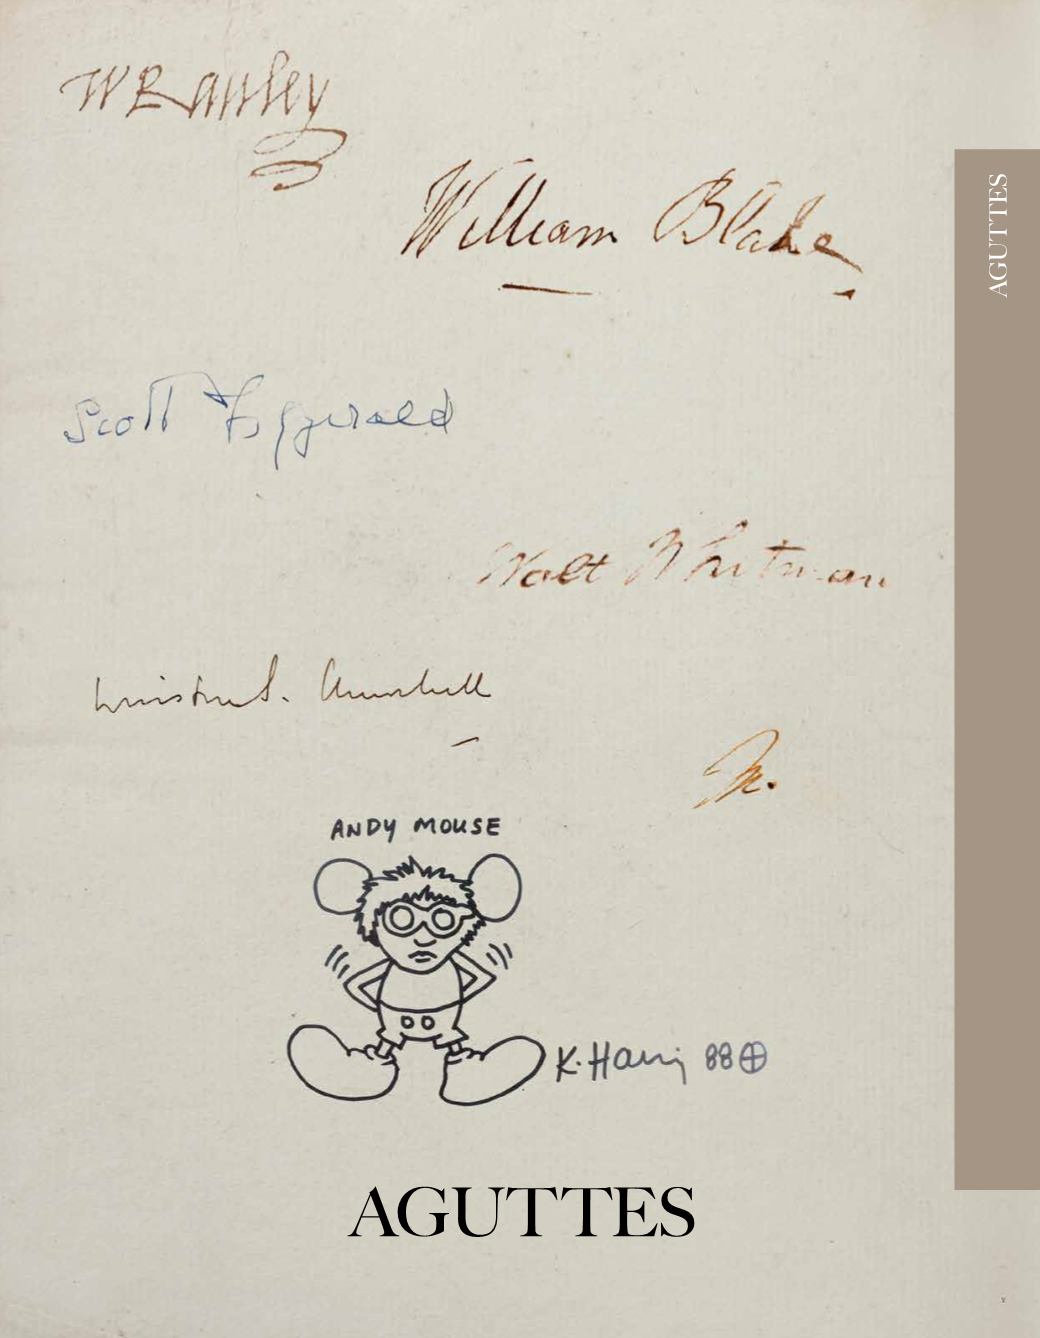 AGUTTES
William Blake
Scott Fitzgerald
Walt Whitman
Winston S. Churchill
ANDY MOUSE
K. Haring 88
AGUTTES